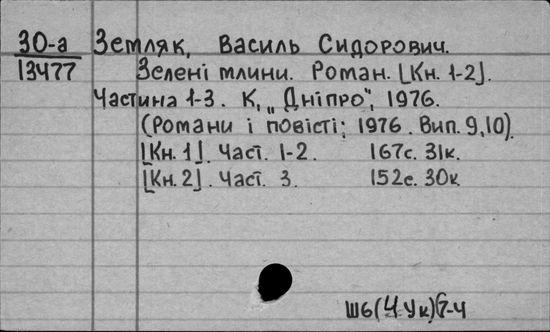 30-а Земляк, Василь Сидорович.
13477 Зелені млини. Роман. [Кн. 1-2].
Частина 1-3. К, „Дніпро", 1976.
(Романи і повісті; 1976. Вип. 9,10).
[Кн. 1]. Част. 1-2. 167с. 31к.
[Кн. 2]. Част. 3. 152с. 30к.
Ш6(4Ук)7-4